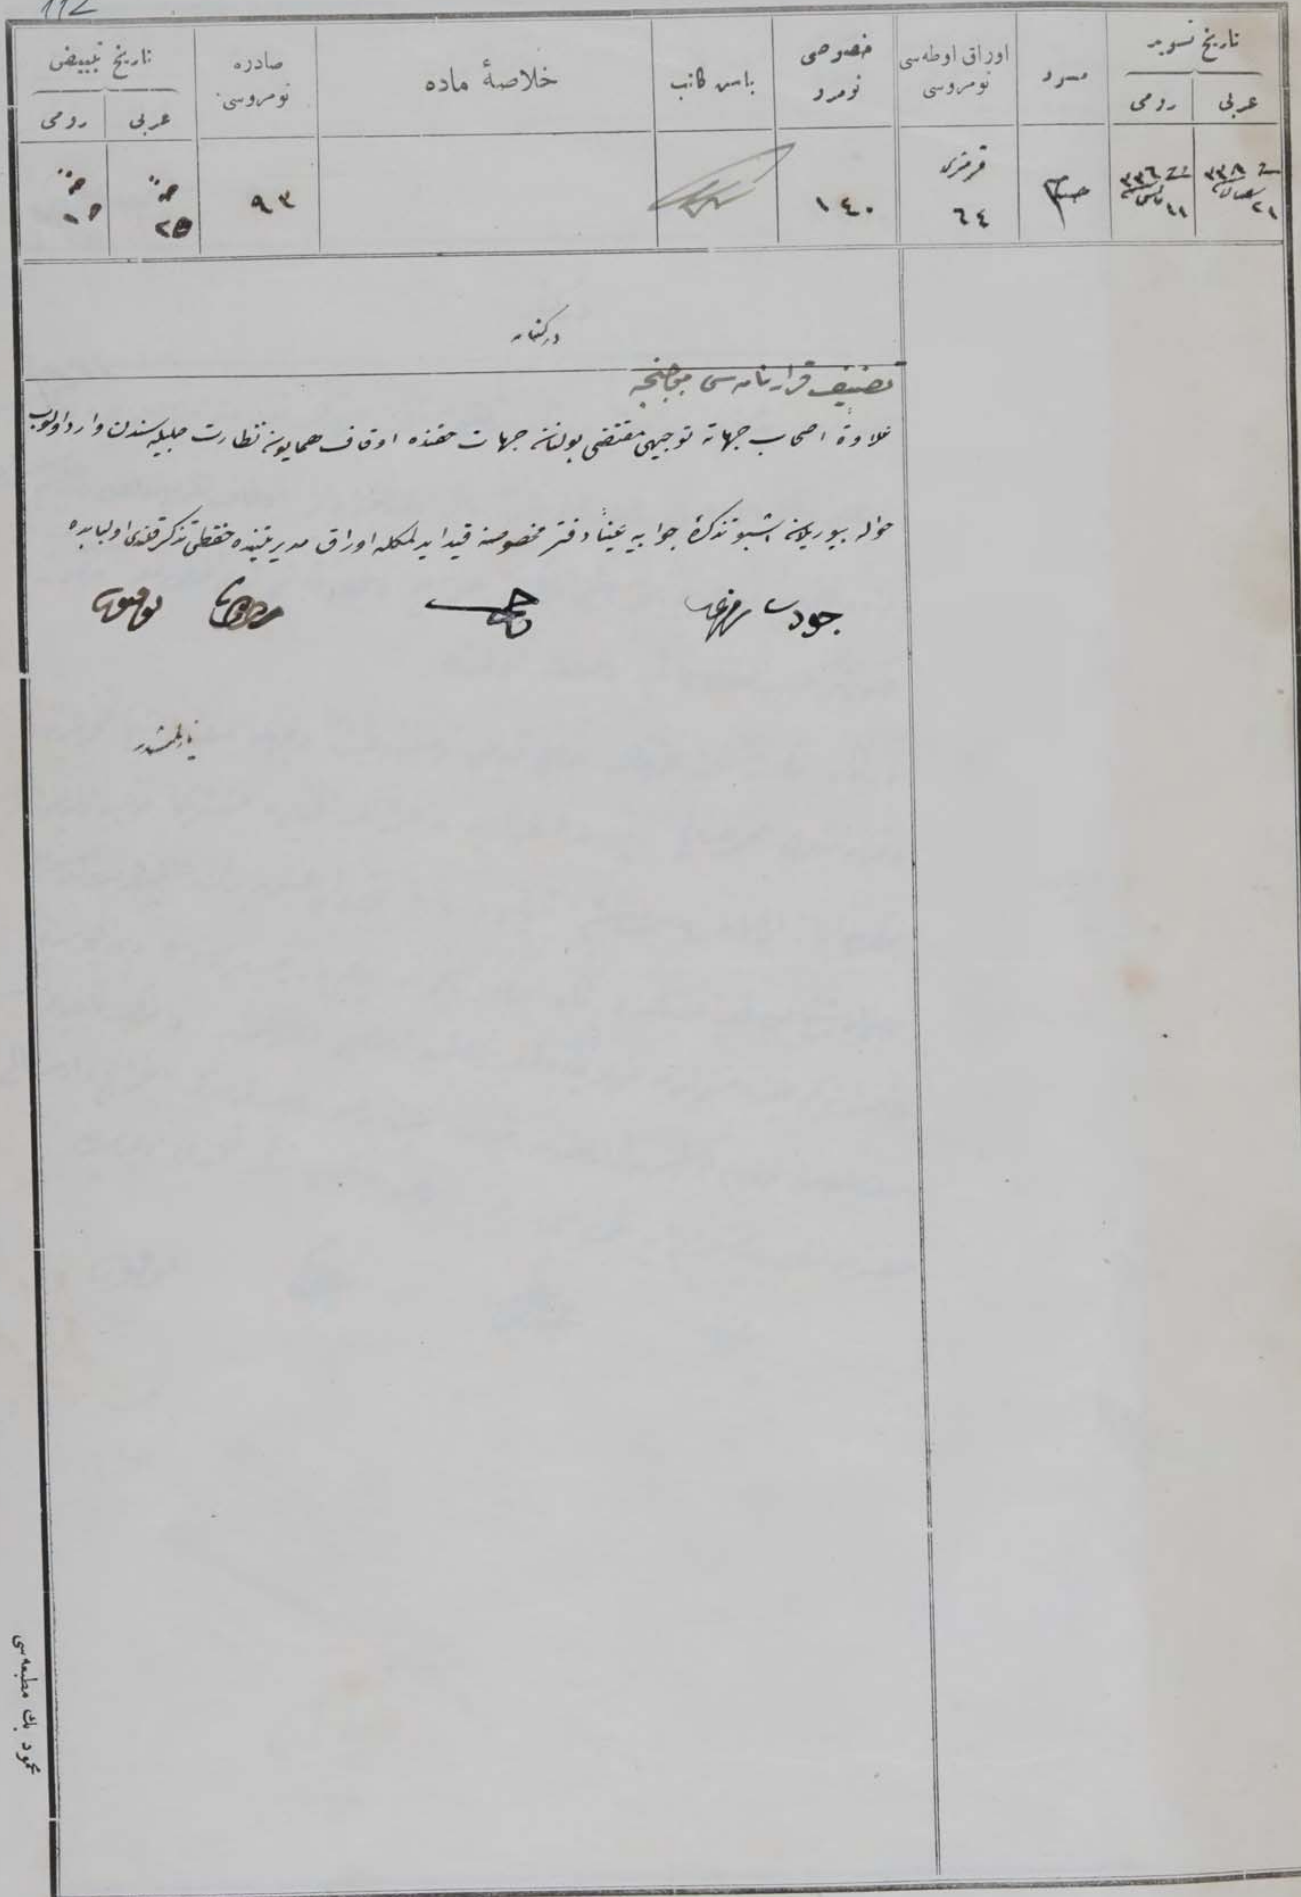 112
تاریخ تسوید
عربی رومی
مسود
اوراق اوطه‌سی نومروسی
خصوصی نومرو
باش كاتب
خلاصهٔ ماده
صادره نومروسی
تاریخ تبییض
عربی رومی
٢١ شعبان سنه ٣٣٨
١١ مایس سنه ٣٣٦
٦٤
١٤٠
٩٣
٢٥
١٥
دركنار
تصنیف قرارنامه‌سی موجبنجه
علاوة اصحاب جهاته توجیهی مقتضی بولنان جهات حقنده اوقاف همایون نظارت جلیله‌سندن وارد اولوب
حواله بیوریلان اشبو تذكرهٔ جوابیه عیناً دفتر مخصوصنه قید ایدلمكله اوراق مدیریتنده حفظی تذكر قلندی اولبابده
جودت
توفیق
یازلمشدر
محمود بك مطبعه‌سی